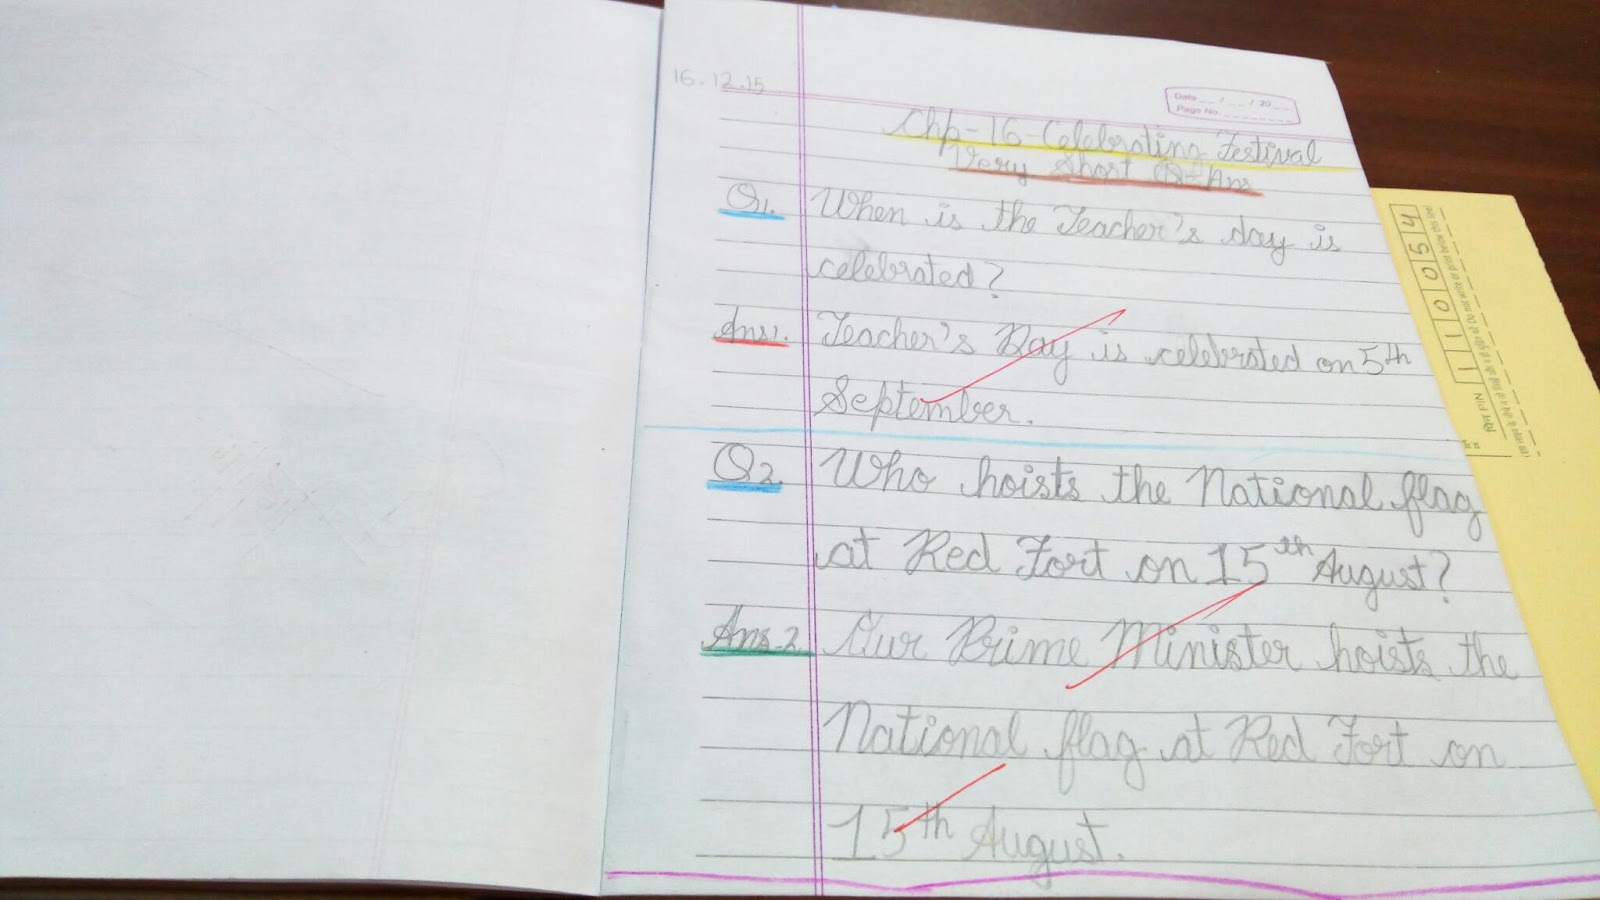 16.12.15
Date __/__/20__
Page No. ________
Chp-16-Celebrating Festival
Very Short Q-Ans
Q1. When is the Teacher's day is
celebrated?
Ans1. Teacher's Day is celebrated on 5th
September.
Q2. Who hoists the National flag
at Red Fort on 15th August?
Ans.2. Our Prime Minister hoists the
National flag at Red Fort on
15th August.
पिन PIN 1 1 0 0 5 4
Do not write or print below this line